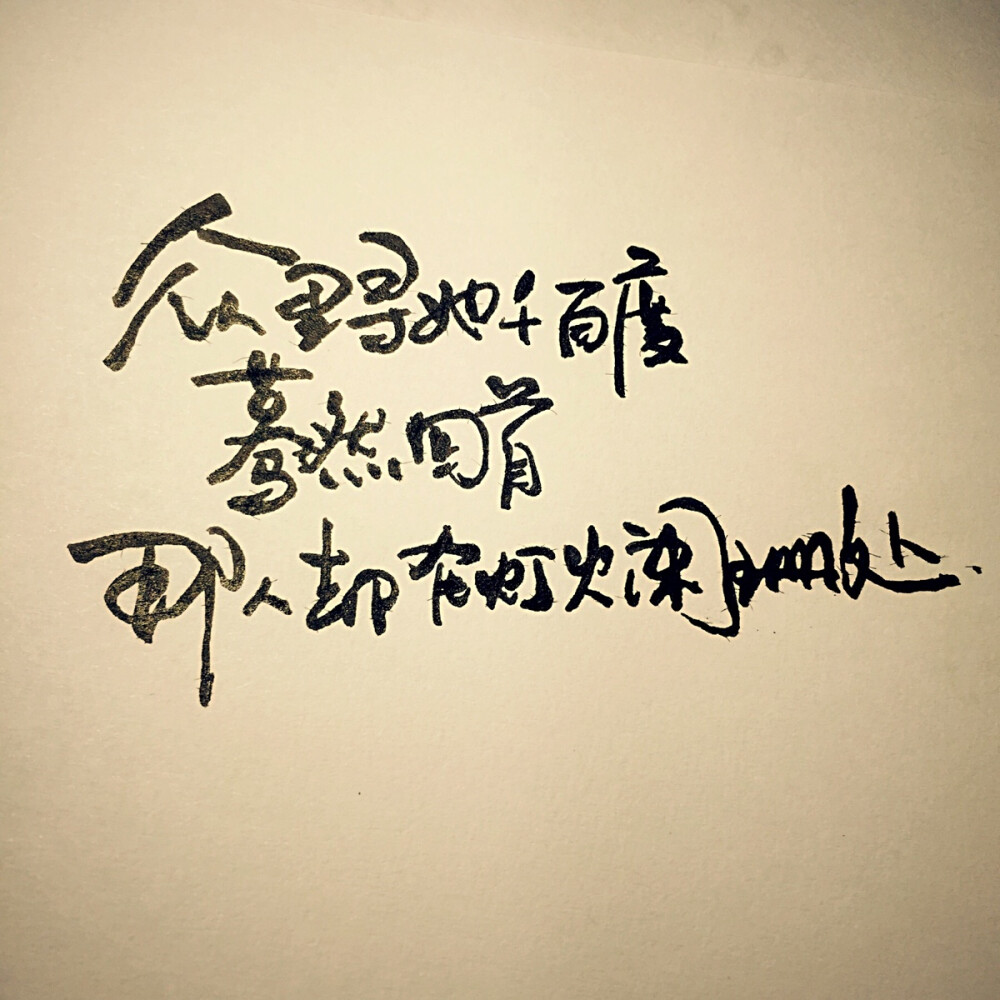 众里寻她千百度
蓦然回首
那人却在灯火阑珊处.